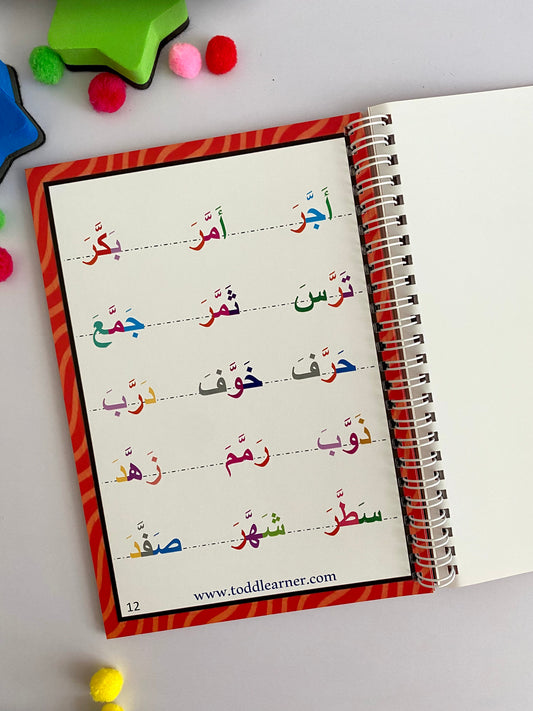 أَجَّرَ أَمَّرَ بَكَّرَ
تَرَّسَ ثَمَّرَ جَمَّعَ
حَرَّفَ خَوَّفَ دَرَّبَ
ذَوَّبَ رَمَّمَ زَهَّدَ
سَطَّرَ شَهَّرَ صَفَّدَ
www.toddlearner.com
12